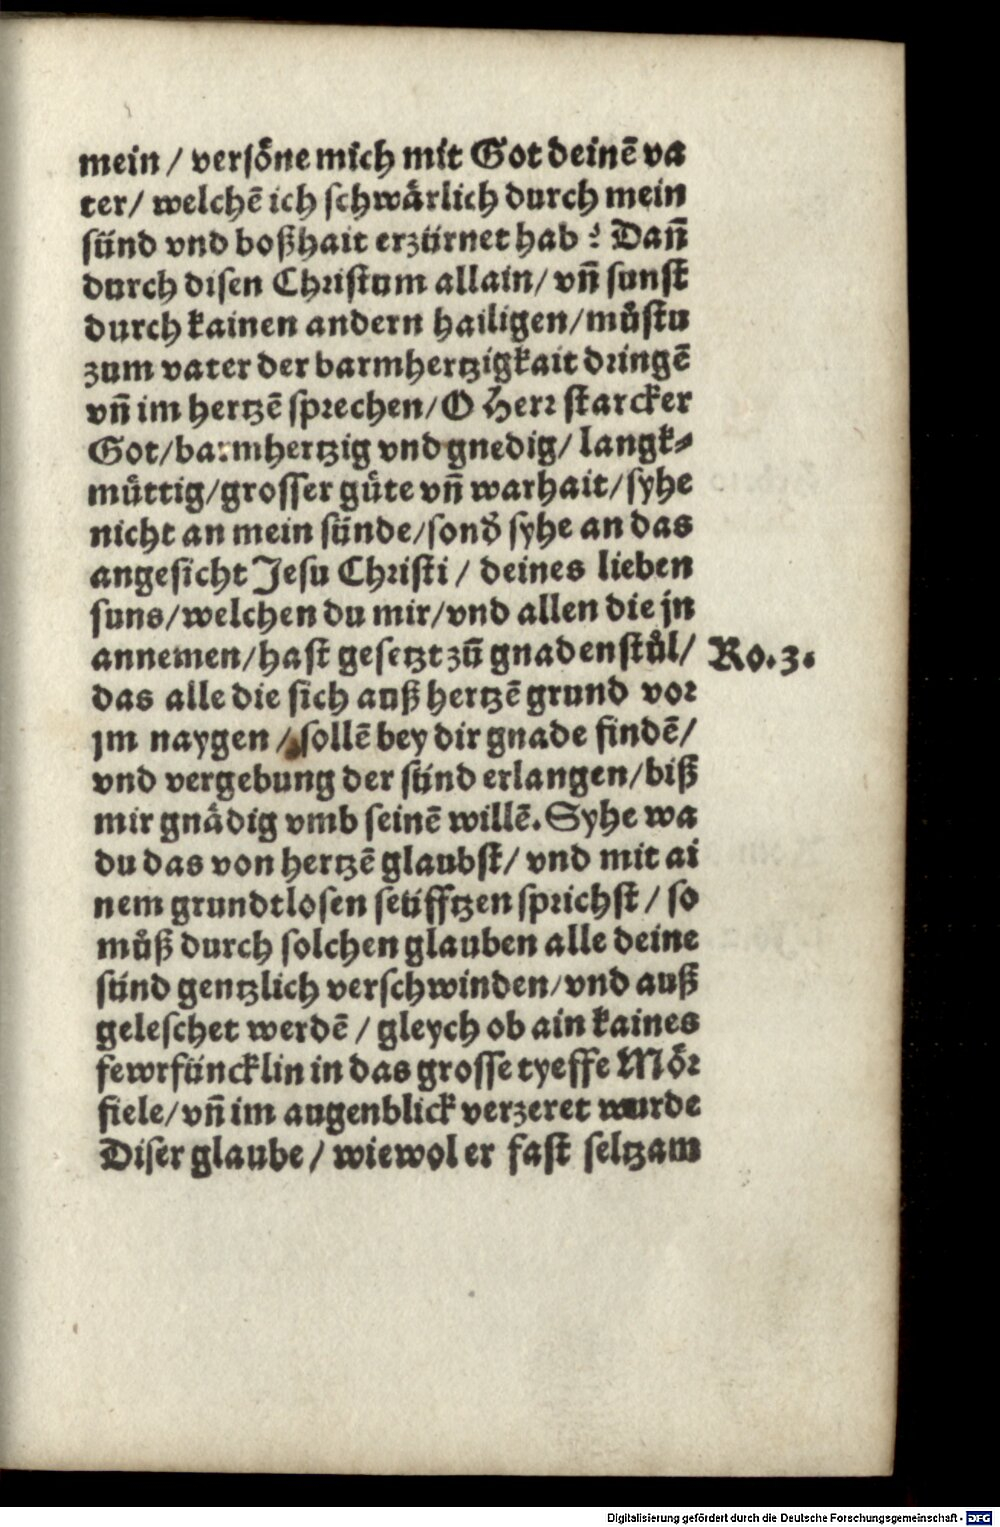 mein / versoͤne mich mit Got deinē va
ter/ welchē ich schwaͤrlich durch mein
sünd vnd boßhait erzürnet hab : Dañ
durch disen Christum allain/ vñ sunst
durch kainen andern hailigen/muͦstu
zum vater der barmhertzigkait dringē
vñ im hertzē sprechen/O Herr starcker
Got/barmhertzig vnd gnedig/ langk⸗
muͤttig/grosser guͤte vñ warhait/syhe
nicht an mein sünde/sond̓ syhe an das
angesicht Jesu Christi / deines lieben
suns/welchen du mir/vnd allen die jn
annemen/hast gesetzt zuͦ gnadenstuͦl/ Ro.3.
das alle die sich auß hertzē grund vor
jm naygen / sollē bey dir gnade findē/
vnd vergebung der sünd erlangen/biß
mir gnaͤdig vmb seinē willē. Syhe wa
du das von hertzē glaubst/ vnd mit ai
nem grundtlosen seüfftzen sprichst / so
muͦß durch solchen glauben alle deine
sünd gentzlich verschwinden/vnd auß
geleschet werdē / gleych ob ain kaines
fewrfüncklin in das grosse tyeffe Moͤr
fiele/vñ im augenblick verzeret wurde
Diser glaube / wiewol er fast seltzam
Digitalisierung gefördert durch die Deutsche Forschungsgemeinschaft - DFG